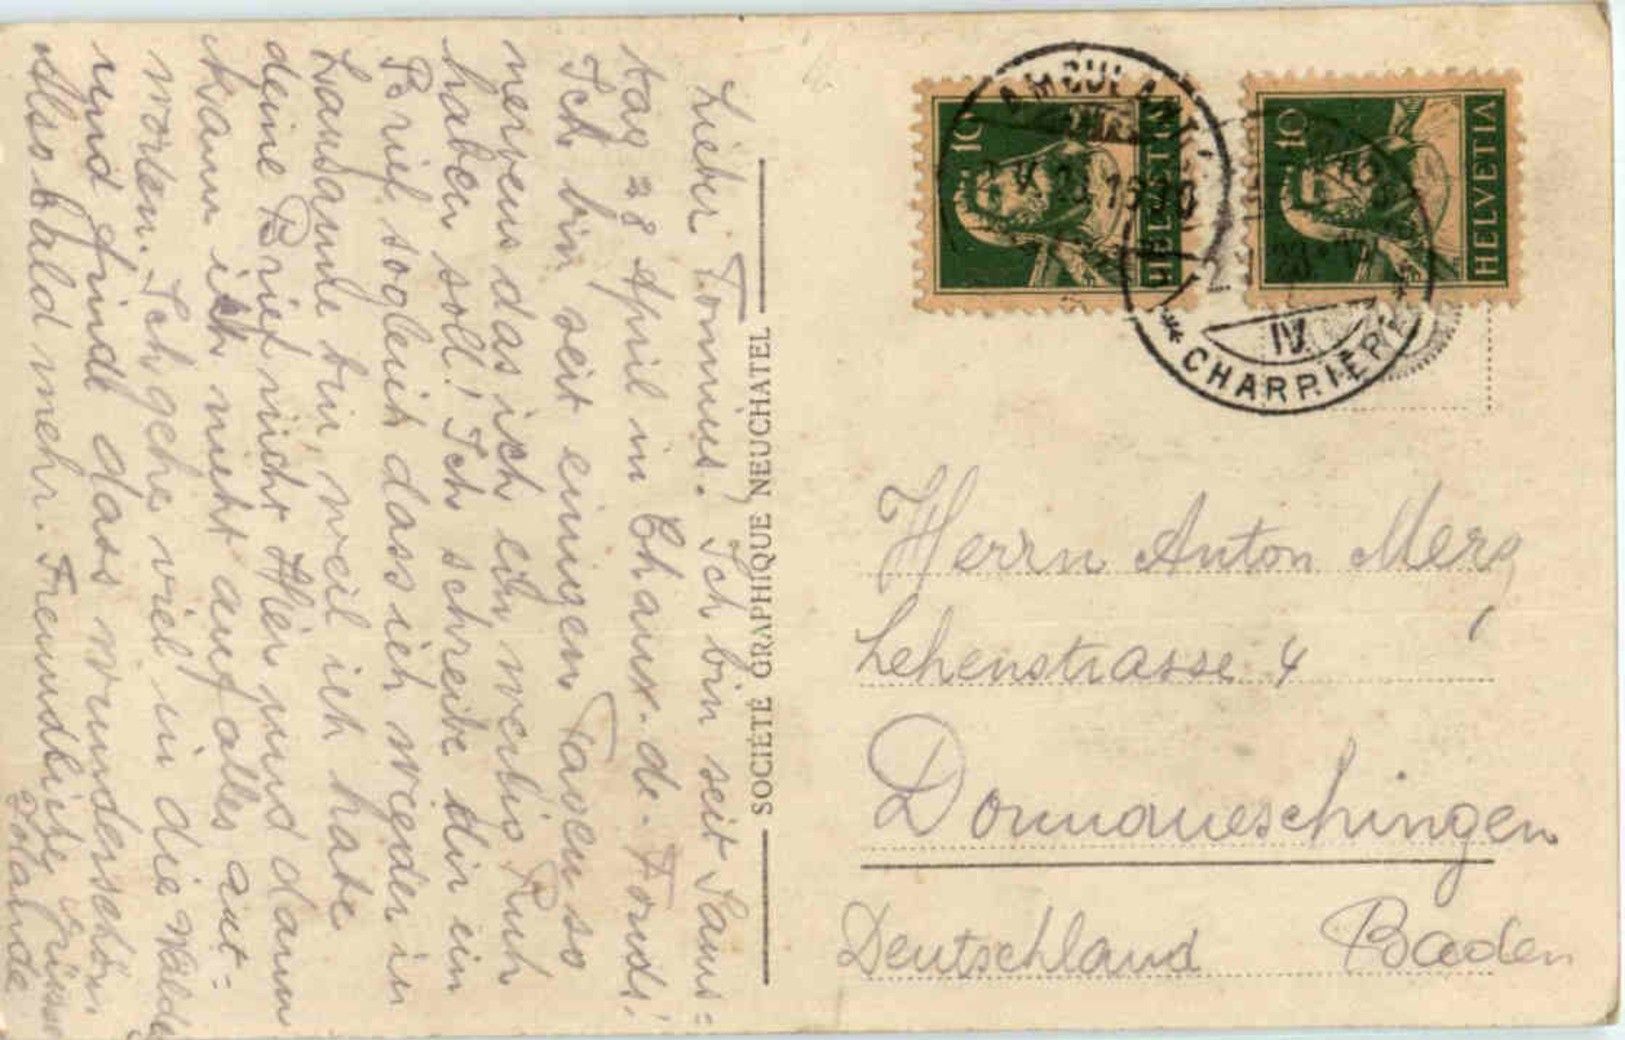 Lieber Tommius. Ich bin seit Sams=
tag 28 April in Chaux-de-Fonds!
Ich bin seit einigen Tasen so
nervens das ich ein wenig Ruch
haben soll! Ich schreibe dir ein
Brief sogleich dass ich wieder in
Lausanne bin, weil ich habe
deine Brief nicht Hier und dann
kann ich nicht auf alles ant=
worten. Ich gehe viel in die Wälder
und findt dass wunderschön.
Also bald mehr. Freundliche Grüsse
Yolande
SOCIÉTÉ GRAPHIQUE NEUCHATEL
10
HELVETIA
10
HELVETIA
AMBULANT
IV
CHARRIÈRE
Herrn Anton Merz
Lehenstrasse 4
Donnaueschingen
Deutschland Baden